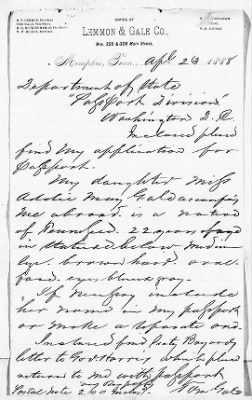 OFFICE OF
LEMMON & GALE CO.,
Nos. 326 & 328 Main Street,
Memphis, Tenn., Apl 23 1888
Department of State
"Passport Division"
Washington D.C.
Inclosed please
find my application for
Passport.
My daughter Miss
Addie May Gale accompanies
me abroad. is a native
of Tennessee. 22 years of age
in stature below medium
eye. brown hair. oval
face. eyes blue gray.
If necessary include
her name in my passport
or make a separate one.
Inclosed find Secty Bayards
letter to Gov Harris which please
return to me with passport
Postal Note 2.00 Inclosed.